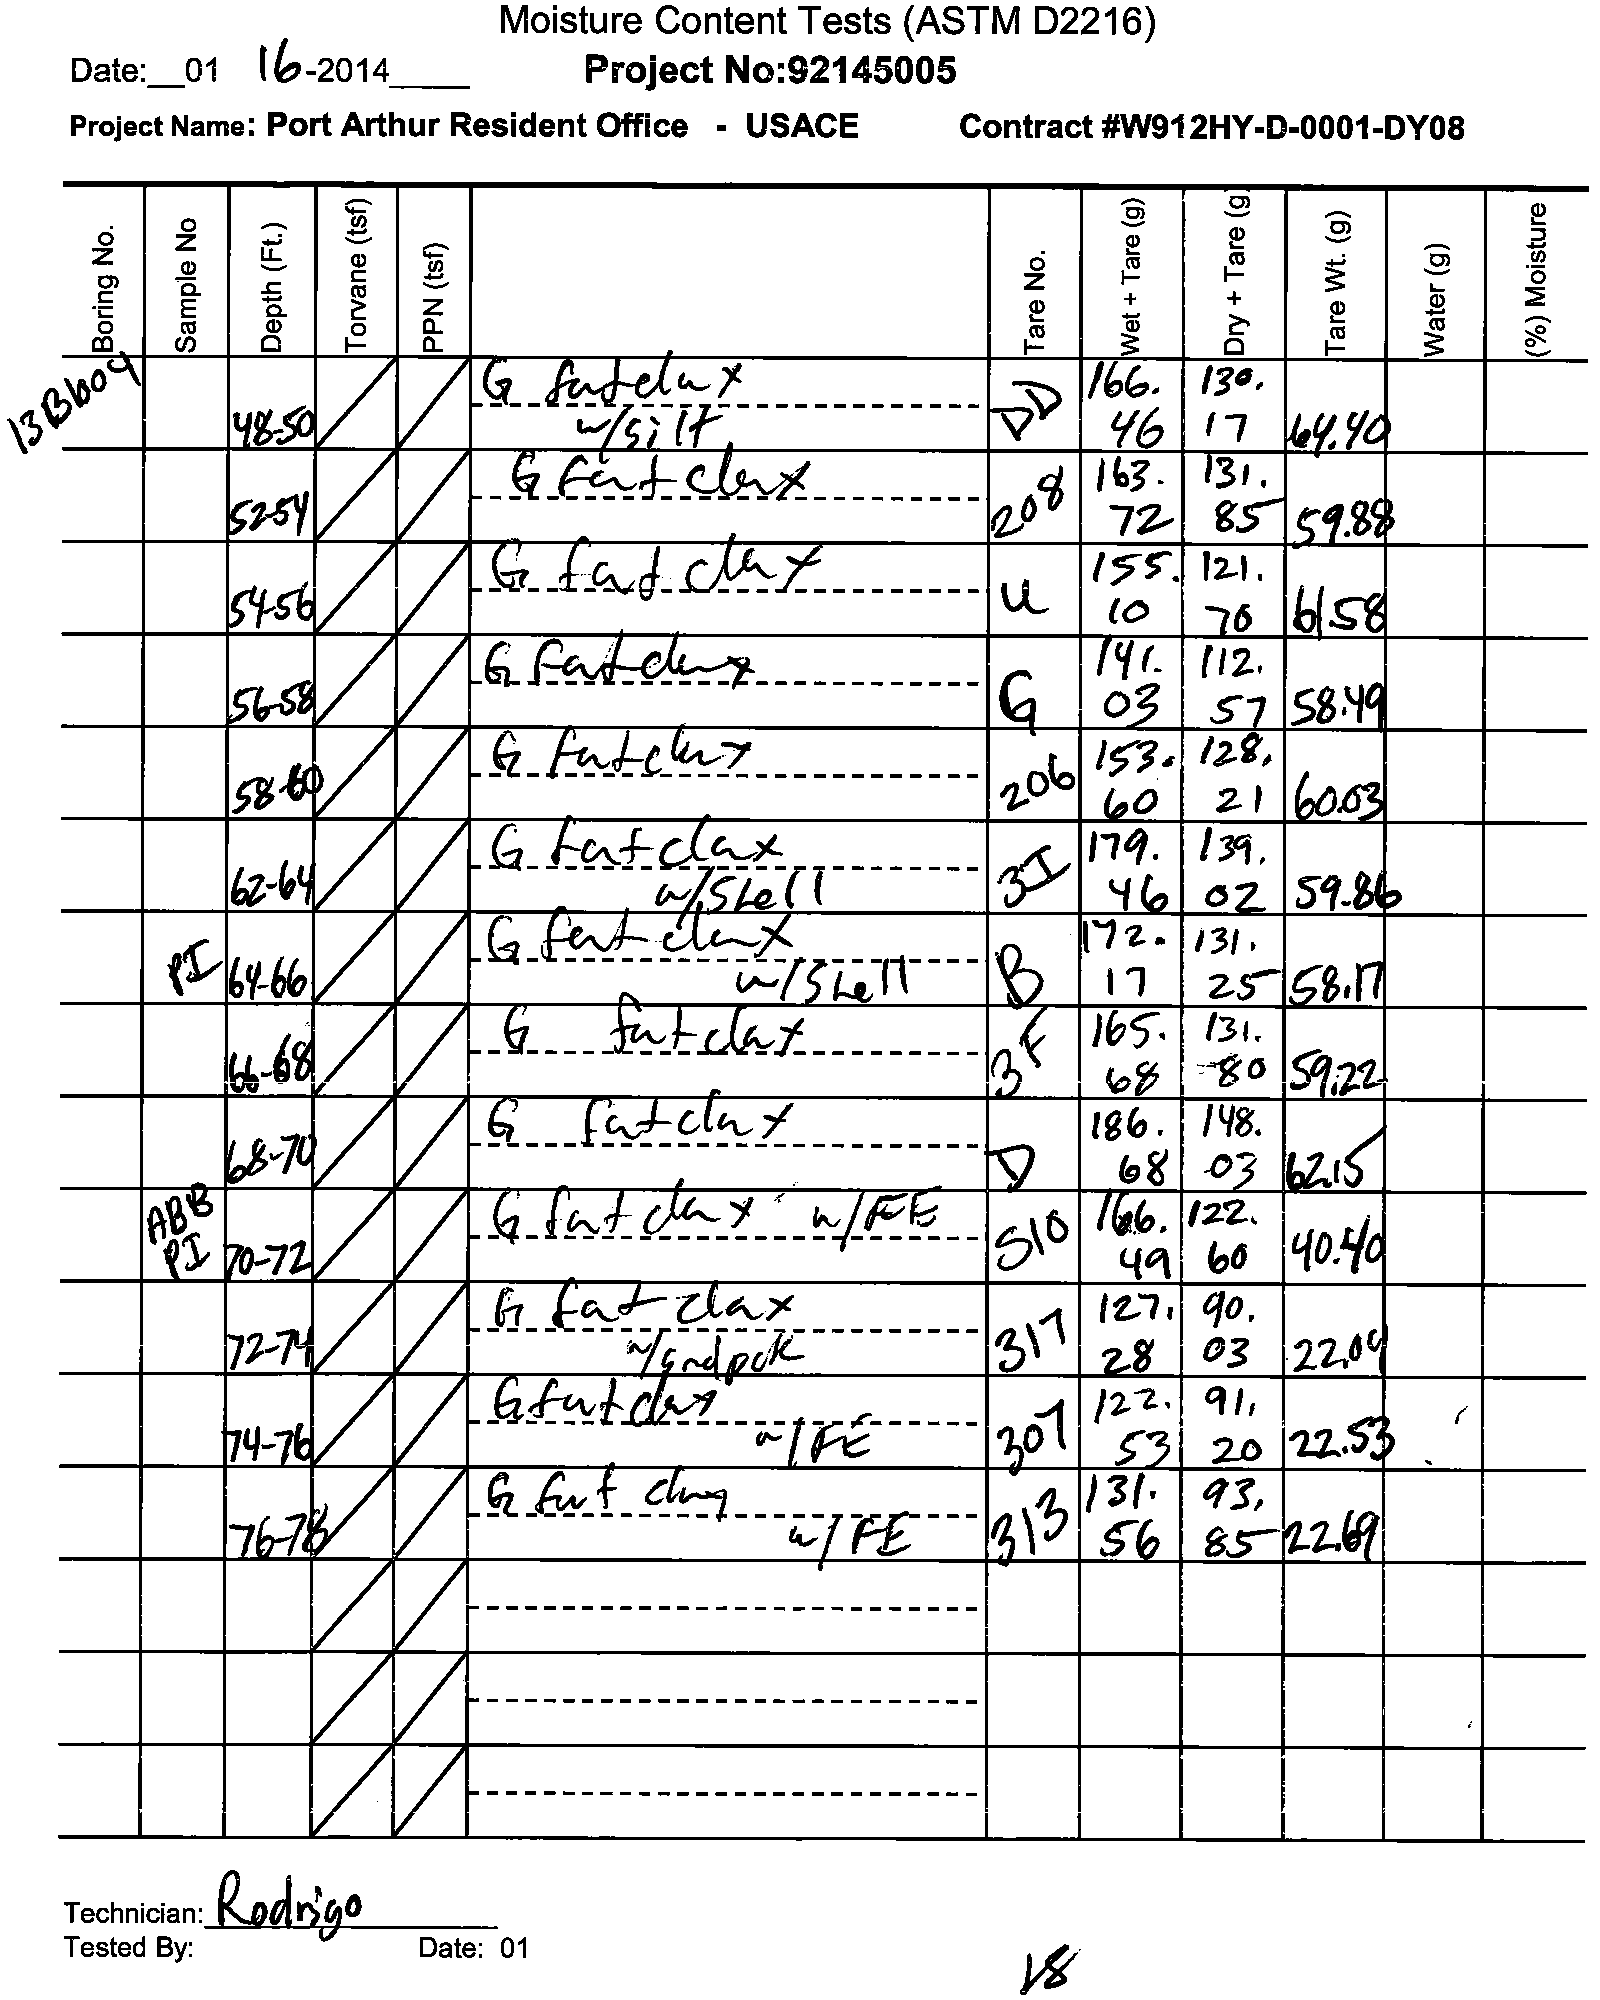 Moisture Content Tests (ASTM D2216)
Date:__01 16-2014____ Project No:92145005
Project Name: Port Arthur Resident Office - USACE Contract #W912HY-D-0001-DY08
Boring No. Sample No Depth (Ft.) Torvane (tsf) PPN (tsf) Tare No. Wet + Tare (g) Dry + Tare (g) Tare Wt. (g) Water (g) (%) Moisture
G fat clay DD 166. 130.
48-50 w/silt 46 17 64.40
G fat clay 208 163. 131.
52-54 72 85 59.88
G fat clay U 155. 121.
54-56 10 70 61.58
G fat clay G 141. 112.
56-58 03 57 58.49
G fat clay 206 153. 128.
58-60 60 21 60.03
G fat clay 3I 179. 139.
62-64 w/shell 46 02 59.86
G fat clay B 172. 131.
PI 64-66 w/shell 17 25 58.17
G fat clay 3F 165. 131.
66-68 68 80 59.22
G fat clay D 186. 148.
68-70 68 03 62.15
ABB G fat clay w/FE S10 166. 122.
PI 70-72 49 60 40.40
G fat clay 317 127. 90.
72-74 28 03 22.09
G fat clay 307 122. 91.
74-76 w/FE 53 20 22.53
G fat clay 313 131. 93.
76-78 w/FE 56 85 22.69
Technician: Rodrigo
Tested By: Date: 01
18